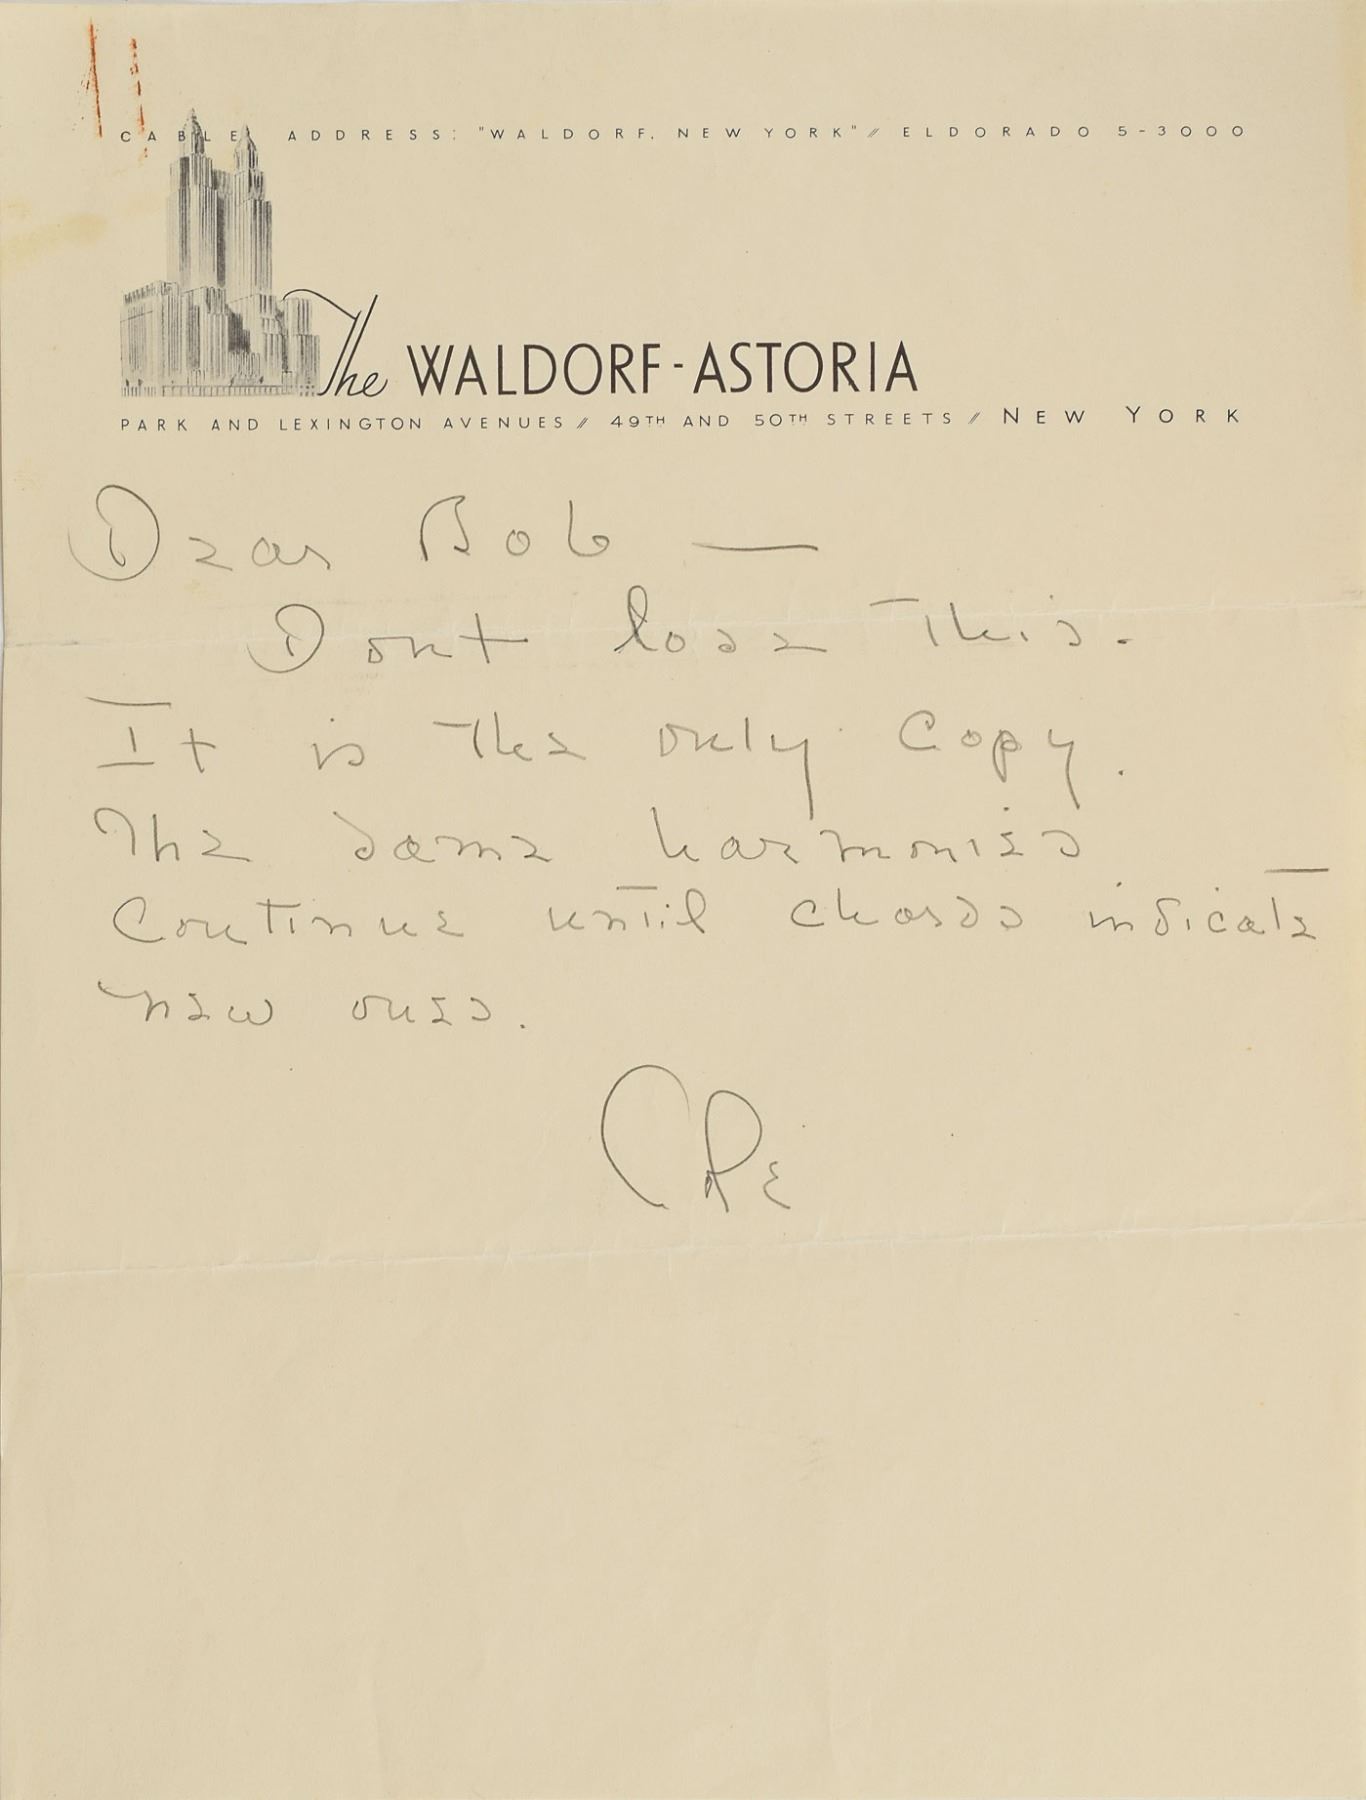 CABLE ADDRESS: "WALDORF, NEW YORK" // ELDORADO 5-3000
The WALDORF-ASTORIA
PARK AND LEXINGTON AVENUES // 49TH AND 50TH STREETS // NEW YORK
Dear Bob —
Dont lose This.
It is The only Copy.
The same harmonies
Continue until chords indicate
new ones.